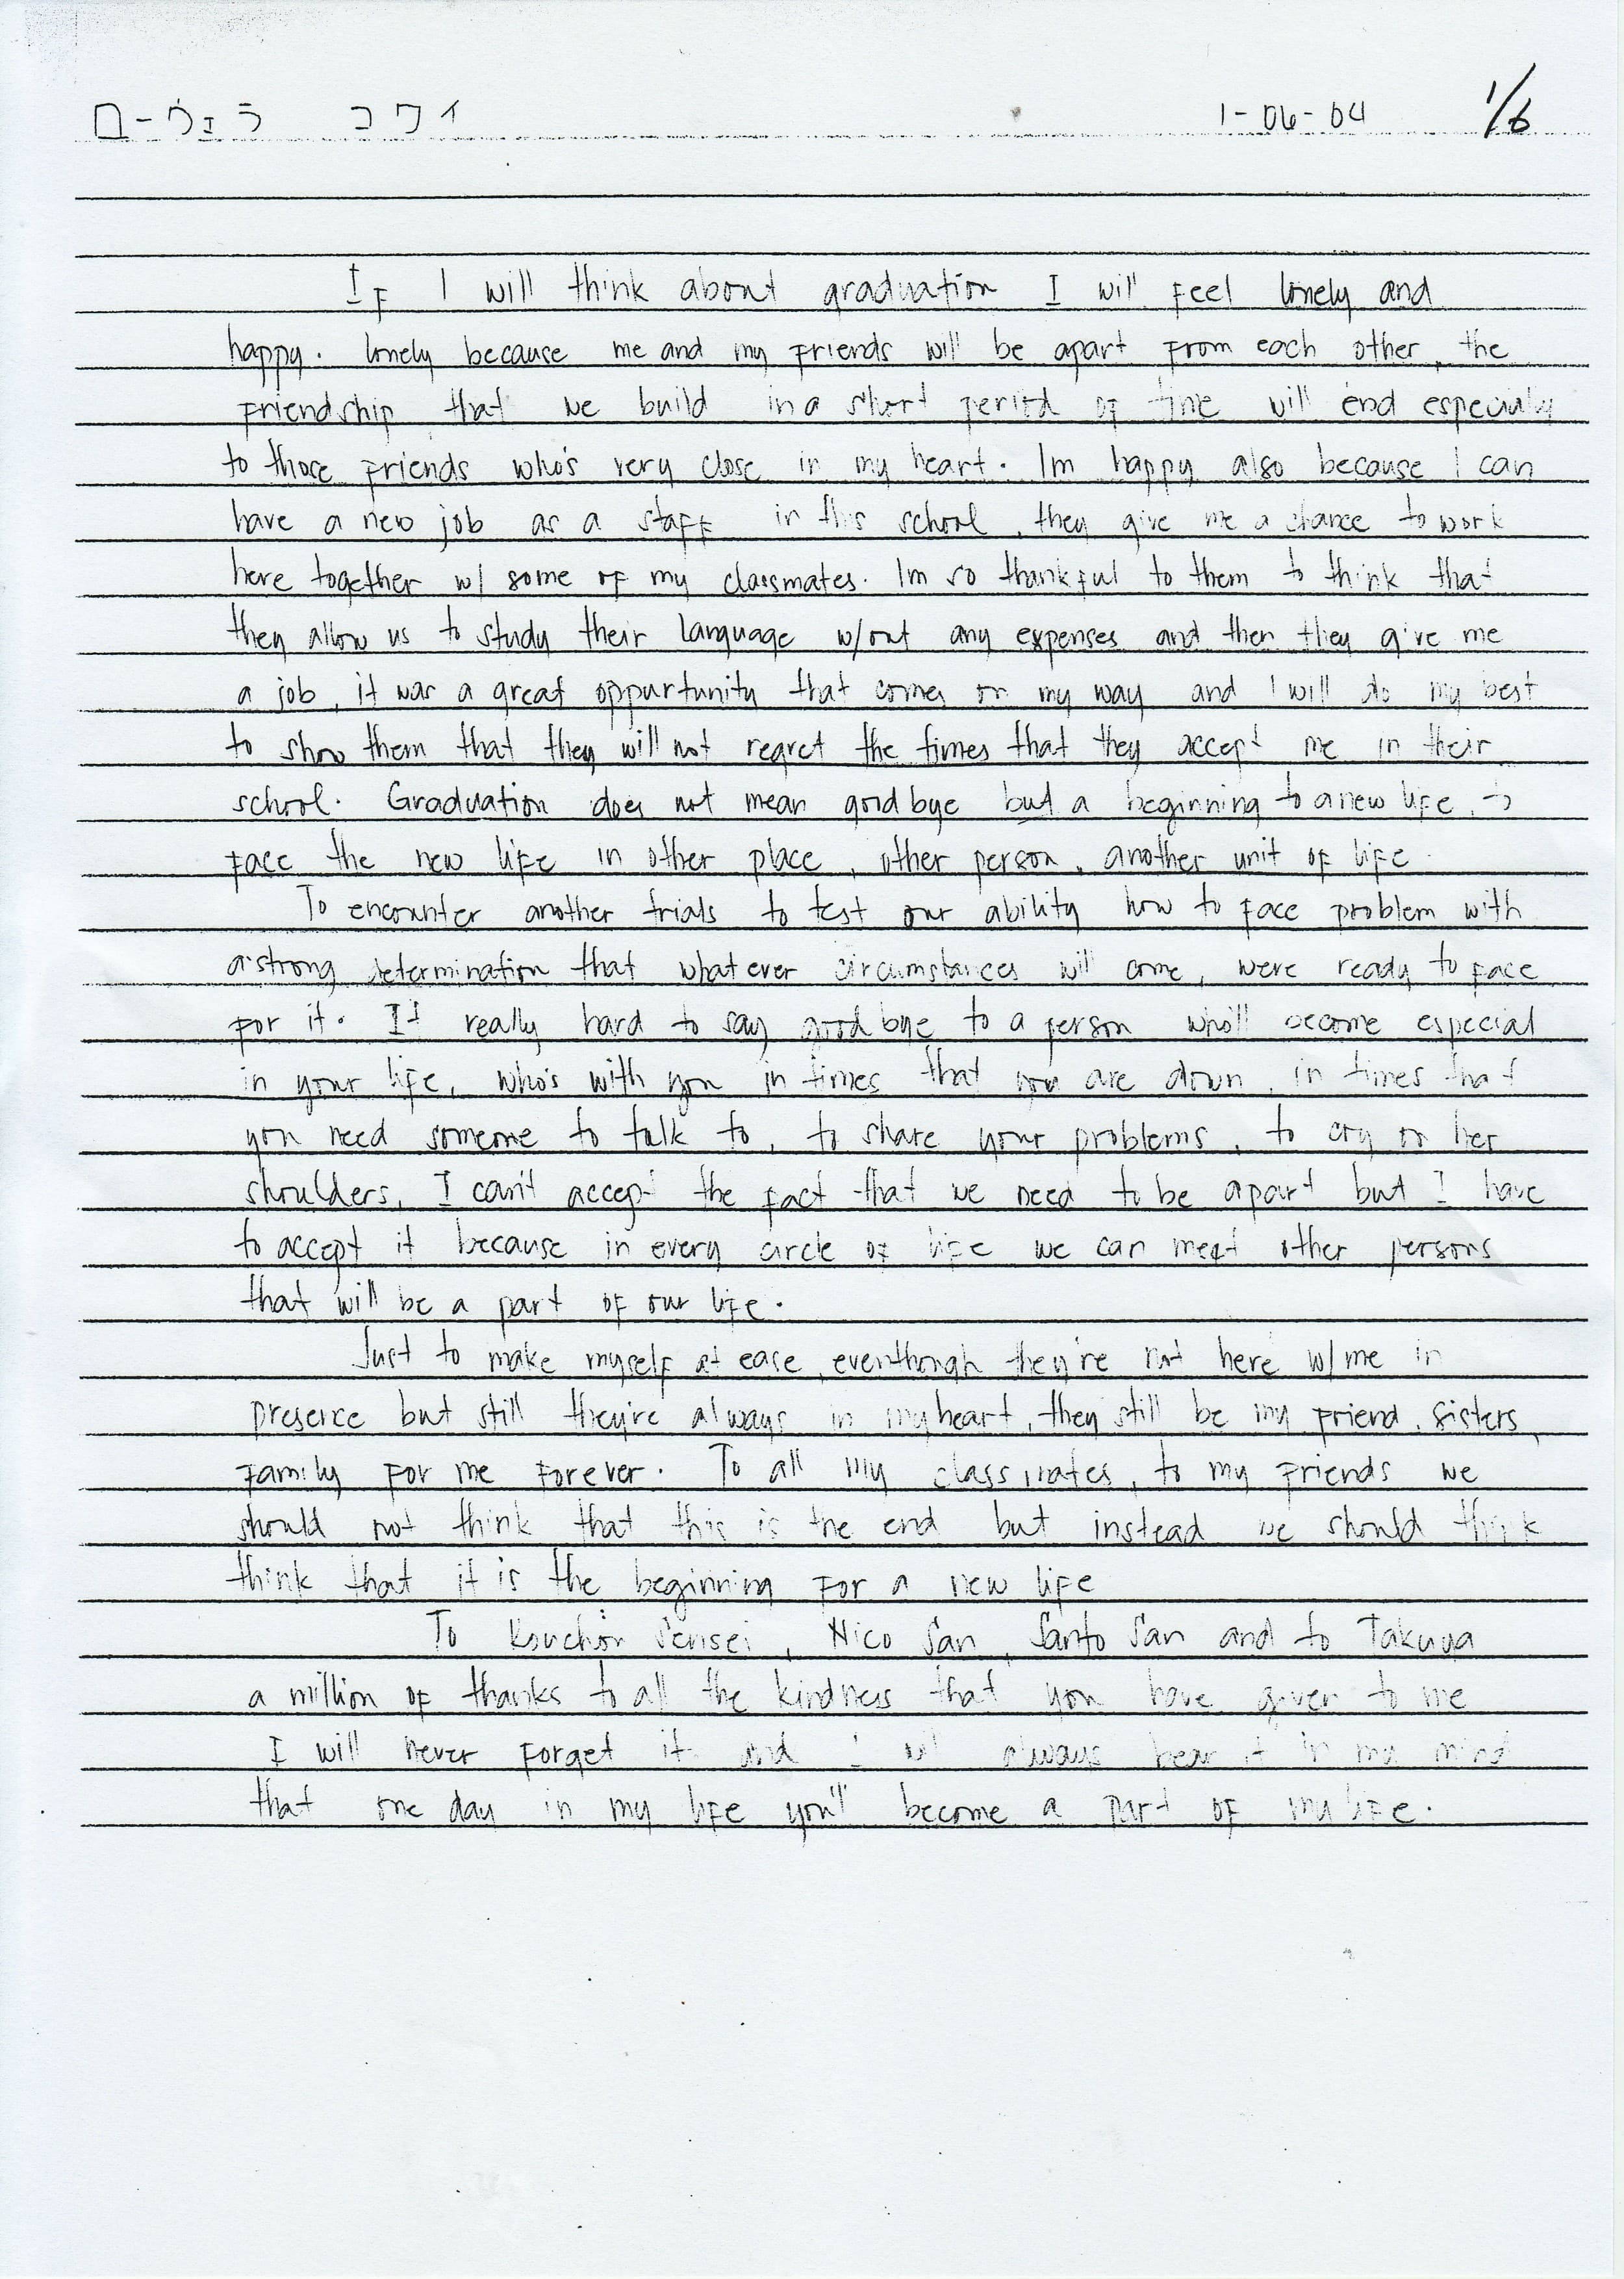 ローヴェラ コワイ 1-06-04 1/6
IF I will think about graduation I will Feel lonely and
happy. lonely because me and my Friends will be apart From each other, the
Friendship that we build in a short period of time will end especially
to those Friends who's very close in my heart. Im happy also because I can
have a new job as a staFF in this school, they give me a chance to work
here together w/ some oF my classmates. Im so thankFul to them to think that
they allow us to study their language w/out any expenses and then they give me
a job, it was a great oppurtunity that comes on my way and I will do my best
to show them that they will not regret the times that they accept me in their
school. Graduation does not mean goodbye but a beginning to a new liFe, to
Face the new liFe in other place, other person, another unit oF liFe.
To encounter another trials to test our ability how to Face problem with
a strong determination that what ever circumstances will come, were ready to Face
For it. It really hard to say good bye to a person who'll become especial
in your liFe, who's with you in times that you are down, in times that
you need someone to talk to, to share your problems, to cry on her
shoulders, I can't accept the Fact that we need to be apart but I have
to accept it because in every circle oF liFe we can meet other persons
that will be a part oF our liFe.
Just to make myselF at ease, eventhough they're not here w/ me in
presence but still they're always in my heart, they still be my Friend, sisters,
Family For me Forever. To all my classmates, to my Friends we
should not think that this is the end but instead we should think
think that it is the beginning For a new liFe
To Kouchou Sensei, Nico San, Santo San and to Takuya
a million oF thanks to all the kindness that you have given to me
I will never Forget it and I will always bear it in my mind
that one day in my liFe you'll become a part oF my liFe.